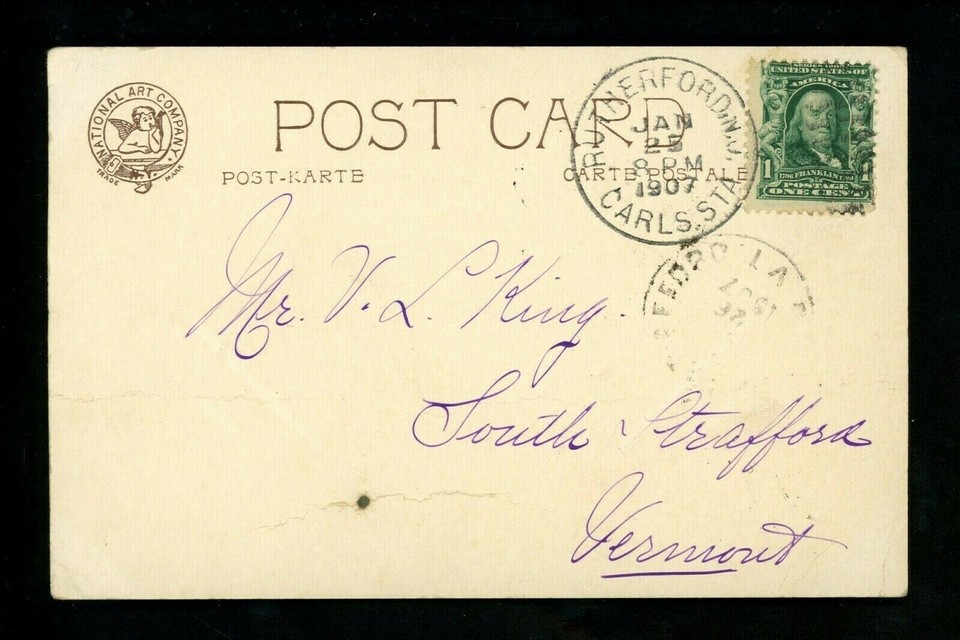 NATIONAL ART COMPANY.
N.Y.
TRADE MARK
POST CARD
POST-KARTE
CARTE POSTALE
RUTHERFORD, N.J.
JAN
25
8 PM
1907
CARLS. STA.
UNITED STATES OF
AMERICA
1 FRANKLIN 1
POSTAGE
ONE CENT
Mr. V. L. King.
South Strafford
Vermont